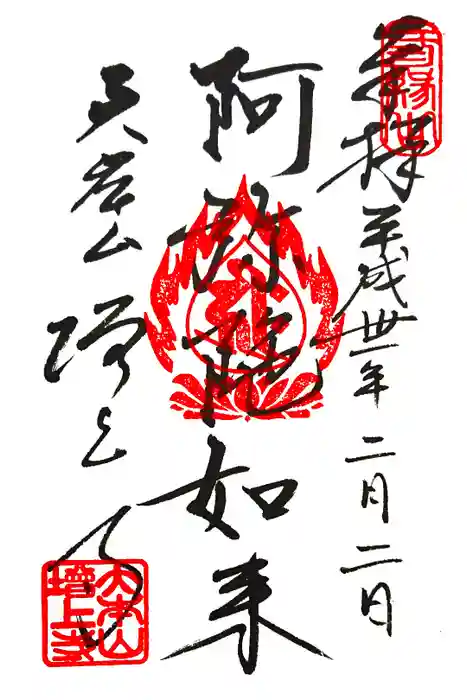 奉拝 平成卅一年 二月二日
阿弥陀如来
三縁山 増上寺
大本山
增上寺